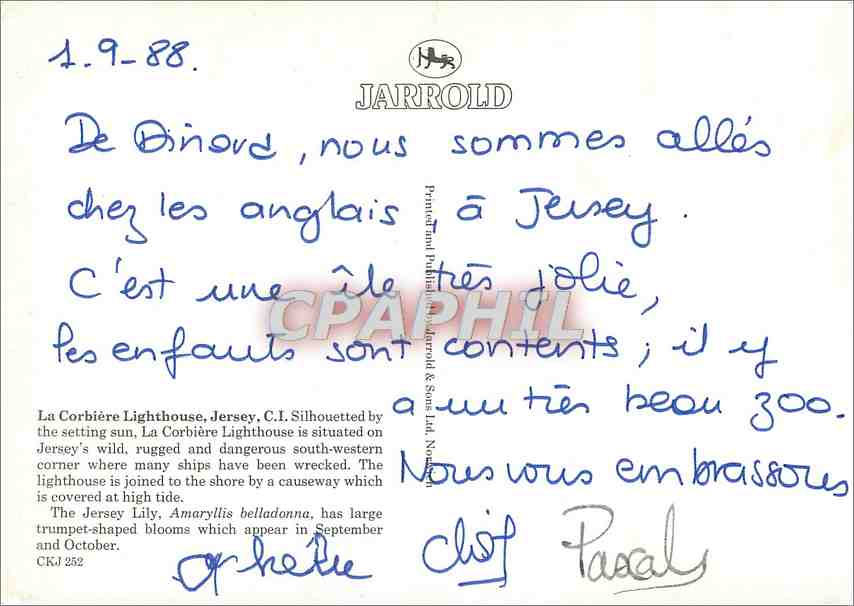 1.9-88.
JARROLD
De Dinard, nous sommes allés
chez les anglais, à Jersey.
C'est une île très jolie,
les enfants sont contents ; il y
a un très beau zoo.
Nous vous embrassons
Pascal
Printed and Published by Jarrold & Sons Ltd. Norwich
CPAPHIL
La Corbière Lighthouse, Jersey, C.I. Silhouetted by
the setting sun, La Corbière Lighthouse is situated on
Jersey's wild, rugged and dangerous south-western
corner where many ships have been wrecked. The
lighthouse is joined to the shore by a causeway which
is covered at high tide.
The Jersey Lily, Amaryllis belladonna, has large
trumpet-shaped blooms which appear in September
and October.
CKJ 252